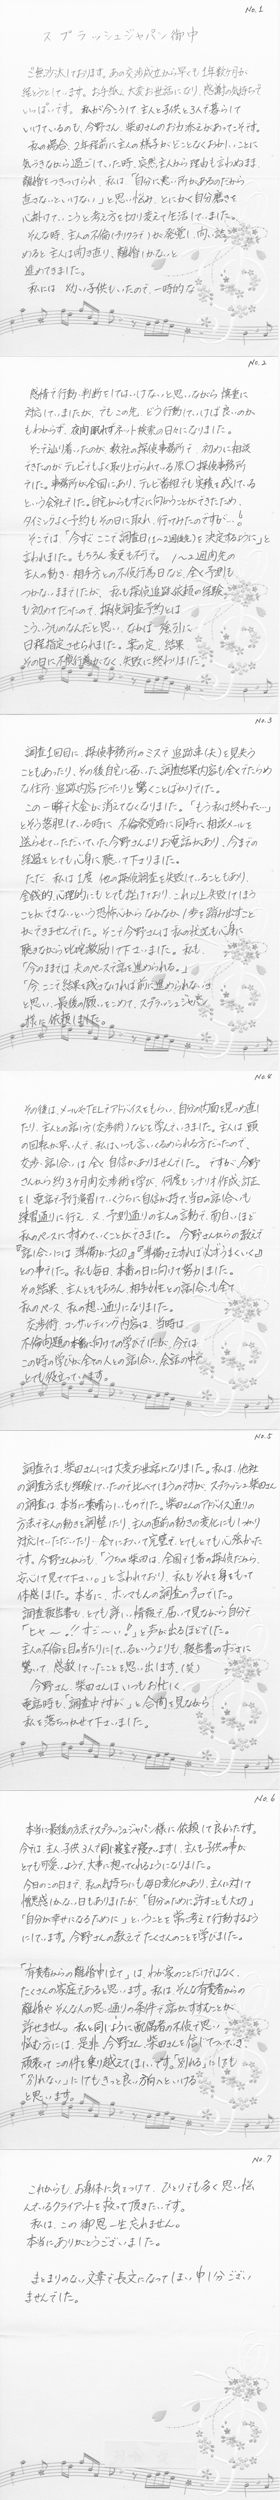 No.1
スプラッシュジャパン御中
ご無沙汰しております。あの交渉成立から早くも1年数ヶ月が
経とうとしています。お手紙、大変お世話になり、感謝の気持ちで
いっぱいです。私が今こうして、主人と子供と3人で暮らして
いけているのも、今野さん、柴田さんのお力添えがあってこそです。
私の場合、2年程前に主人の様子がどことなくおかしいことに
気づきながら過ごしていた時、突然主人から理由も言わぬまま
離婚をつきつけられ、私は「自分に悪い所があるのだから
直さないといけない」と思い悩み、とにかく自分磨きを
心掛けていこうと考え方を切り変えて生活していました。
そんな時、主人の不倫(チリクテ)が発覚し、問い詰
めると主人は開き直り、離婚しかないと
進めてきました。
私には幼い子供もいたので、一時的な
No.2
感情で行動・判断をしてはいけないと思いながら慎重に
対応していましたが、でもこの先、どう行動していけば良いのか
もわからず、夜も眠れずネット検索の日々になりました。
そこで辿り着いたのが、数社の探偵事務所で、初めに相談
できたのがテレビでもよく取り上げられている原〇探偵事務所
でした。事務所が全国にあり、テレビ番組でも実績を残している
という会社でした。自宅からもすぐに向かうことができたため、
タイミングよく予約もその日に取れ、行ってみたのですが…!
そこでは、「今すぐここで調査日(1〜2週後先)を決定するように」と
言われました。もちろん変更も不可で。1〜2週間先の
主人の動き・相手方との不倫行為日など、全く予測も
つかないままでしたが、私も探偵追跡依頼の経験
も初めてだったので、探偵調査予約とは
こういうものなんだと思い、なかば強引に
日程指定させられました。案の定、結果
その日に不倫行為がなく、失敗に終わりました。
No.3
調査1回目に、探偵事務所のミスで追跡車(夫)を見失う
こともあったり、その後自宅に届いた調査結果内容も全くでたらめ
な住所・追跡内容だったりと驚くことばかりでした。
この一瞬で大金が消えてなくなりました。「もう私は終わった…」
とそう落胆している時に、不倫発覚時に同時に相談メールを
送らせていただいていた今野さんよりお電話があり、今までの
経過をとても心身に聴いて下さりました。
ただ、私は1度、他の探偵調査を失敗していることもあり、
金銭的、心理的にもとても挫けており、これ以上失敗してしまう
ことができないという恐怖心からなかなか1歩を踏み出すこと
ができませんでした。そこで今野さんは私の状況も心身に
聴きながら叱咤激励して下さいました。私も、
「今のままでは夫のペースで話を進められる。」
「今、ここで結果を残さなければ前に進められない」
と思い、最後の願いをこめて、スプラッシュジャパン
様に依頼しました。
No.4
その後は、メールやTELでアドバイスをもらい、自分の内面を見つめ直し
たり、主人との話し方(交渉術)などを学んでいきました。主人は、頭
の回転が早い人で、私はいつも言いくるめられる方だったので、
交渉・話し合いは全く自信がありませんでした。ですが、今野
さんから約3ヶ月間交渉術を学び、何度もシナリオ作成、訂正
をし電話で予行演習していくうちに自信が持て、当日の話し合いも
練習通りに行え、又、予測通りの主人の言動で、面白いほど
私のペースにすすめていくことができました。今野さんからの教えで
『話し合いには準備が大切』『準備さえすれば必ずうまくいく』
との事でした。私も毎日、本番の日に向けて努力しました。
その結果、主人とももちろん、相手女性との話し合いも全て
私のペース、私の想い通りになりました。
交渉術、コンサルティング内容は、当時は
不倫問題の本番に向けての学びでしたが、今では
この時の学びが、全ての人との話し合い、会話の中で
とても役立っています。
No.5
調査では、柴田さんには大変お世話になりました。私は、他社
の調査方法も経験していたので比べてしまうのですが、スプラッシュ柴田さん
の調査は、本当に素晴らしいものでした。柴田さんのアドバイス通りの
方法で主人の動きを調整したり、主人の直前の動きの変化にもしっかり
対応していただいたり、全てにおいて完璧で、とてもとても心強かった
です。今野さんからも、「うちの柴田は、全国で1番の探偵だから、
安心して見てて下さい。」と言われており、私もそれを身をもって
体感しました。本当に、ホンマもんの調査のプロでした。
調査報告書も、とても詳しい情報で、届いて見ながら自分で
「ヒャ〜!!すご〜い!!」と声が出るほどでした。
主人の不倫を目の当たりにしているというよりも、報告書のすごさに
驚いて、感激していたことを思い出します。(笑)
今野さん、柴田さんはいつもお忙しく、
電話時も、「調査中ですが」と合間を見ながら
私を落ちつかせて下さいました。
No.6
本当に最後の方法でスプラッシュジャパン様に依頼して良かったです。
今では、主人、子供、3人で同じ寝室で寝ていますし、主人も子供の事が
とても可愛いようで、大事に想ってくれるようになりました。
今日のこの日まで、私の気持ちにも毎日変化があり、主人に対して
憎悪感しかない日もありましたが、「自分のために許すことも大切」
「自分が幸せになるために」ということを常に考えて行動するよう
にしています。今野さんの教えでたくさんのことを学びました。
「有責者からの離婚申し立て」は、わが家のことだけではなく、
たくさんの家庭であると思います。私は、そんな有責者からの
離婚や、そんな人の思い通りの条件で話がすすむことが
許せません。私と同じように配偶者の不倫で思い
悩む方には、是非、今野さん、柴田さんを信じてついていき、
頑張ってこの件を乗り越えてほしいです。「別れる」にしても
「別れない」にしてもきっと良い方向へといける
と思います。
No.7
これからも、お身体に気をつけて、ひとりでも多く思い悩
んでいるクライアントを救って頂きたいです。
私は、この御恩一生忘れません。
本当にありがとうございました。
まとまりのない文章で長文になってしまい、申し分ござい
ませんでした。